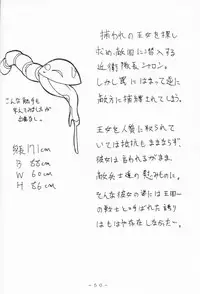 捕われの王女を探し
求め、敵国に潜入する
近衛隊長シャロン。
しかし罠にはまって逆に
敵方に捕縛されてしまう。
王女を人質に取られて
いては抵抗もままならず、
彼女は言われるがまま、
敵兵士達の慰みものに。
そんな彼女の姿には王国一
の戦士と呼ばれた誇り
はもはや存在しなかった〜。
こんな触手も
考えてみましたが
身長171cm
B 88cm
W 60cm
H 86cm
-50-